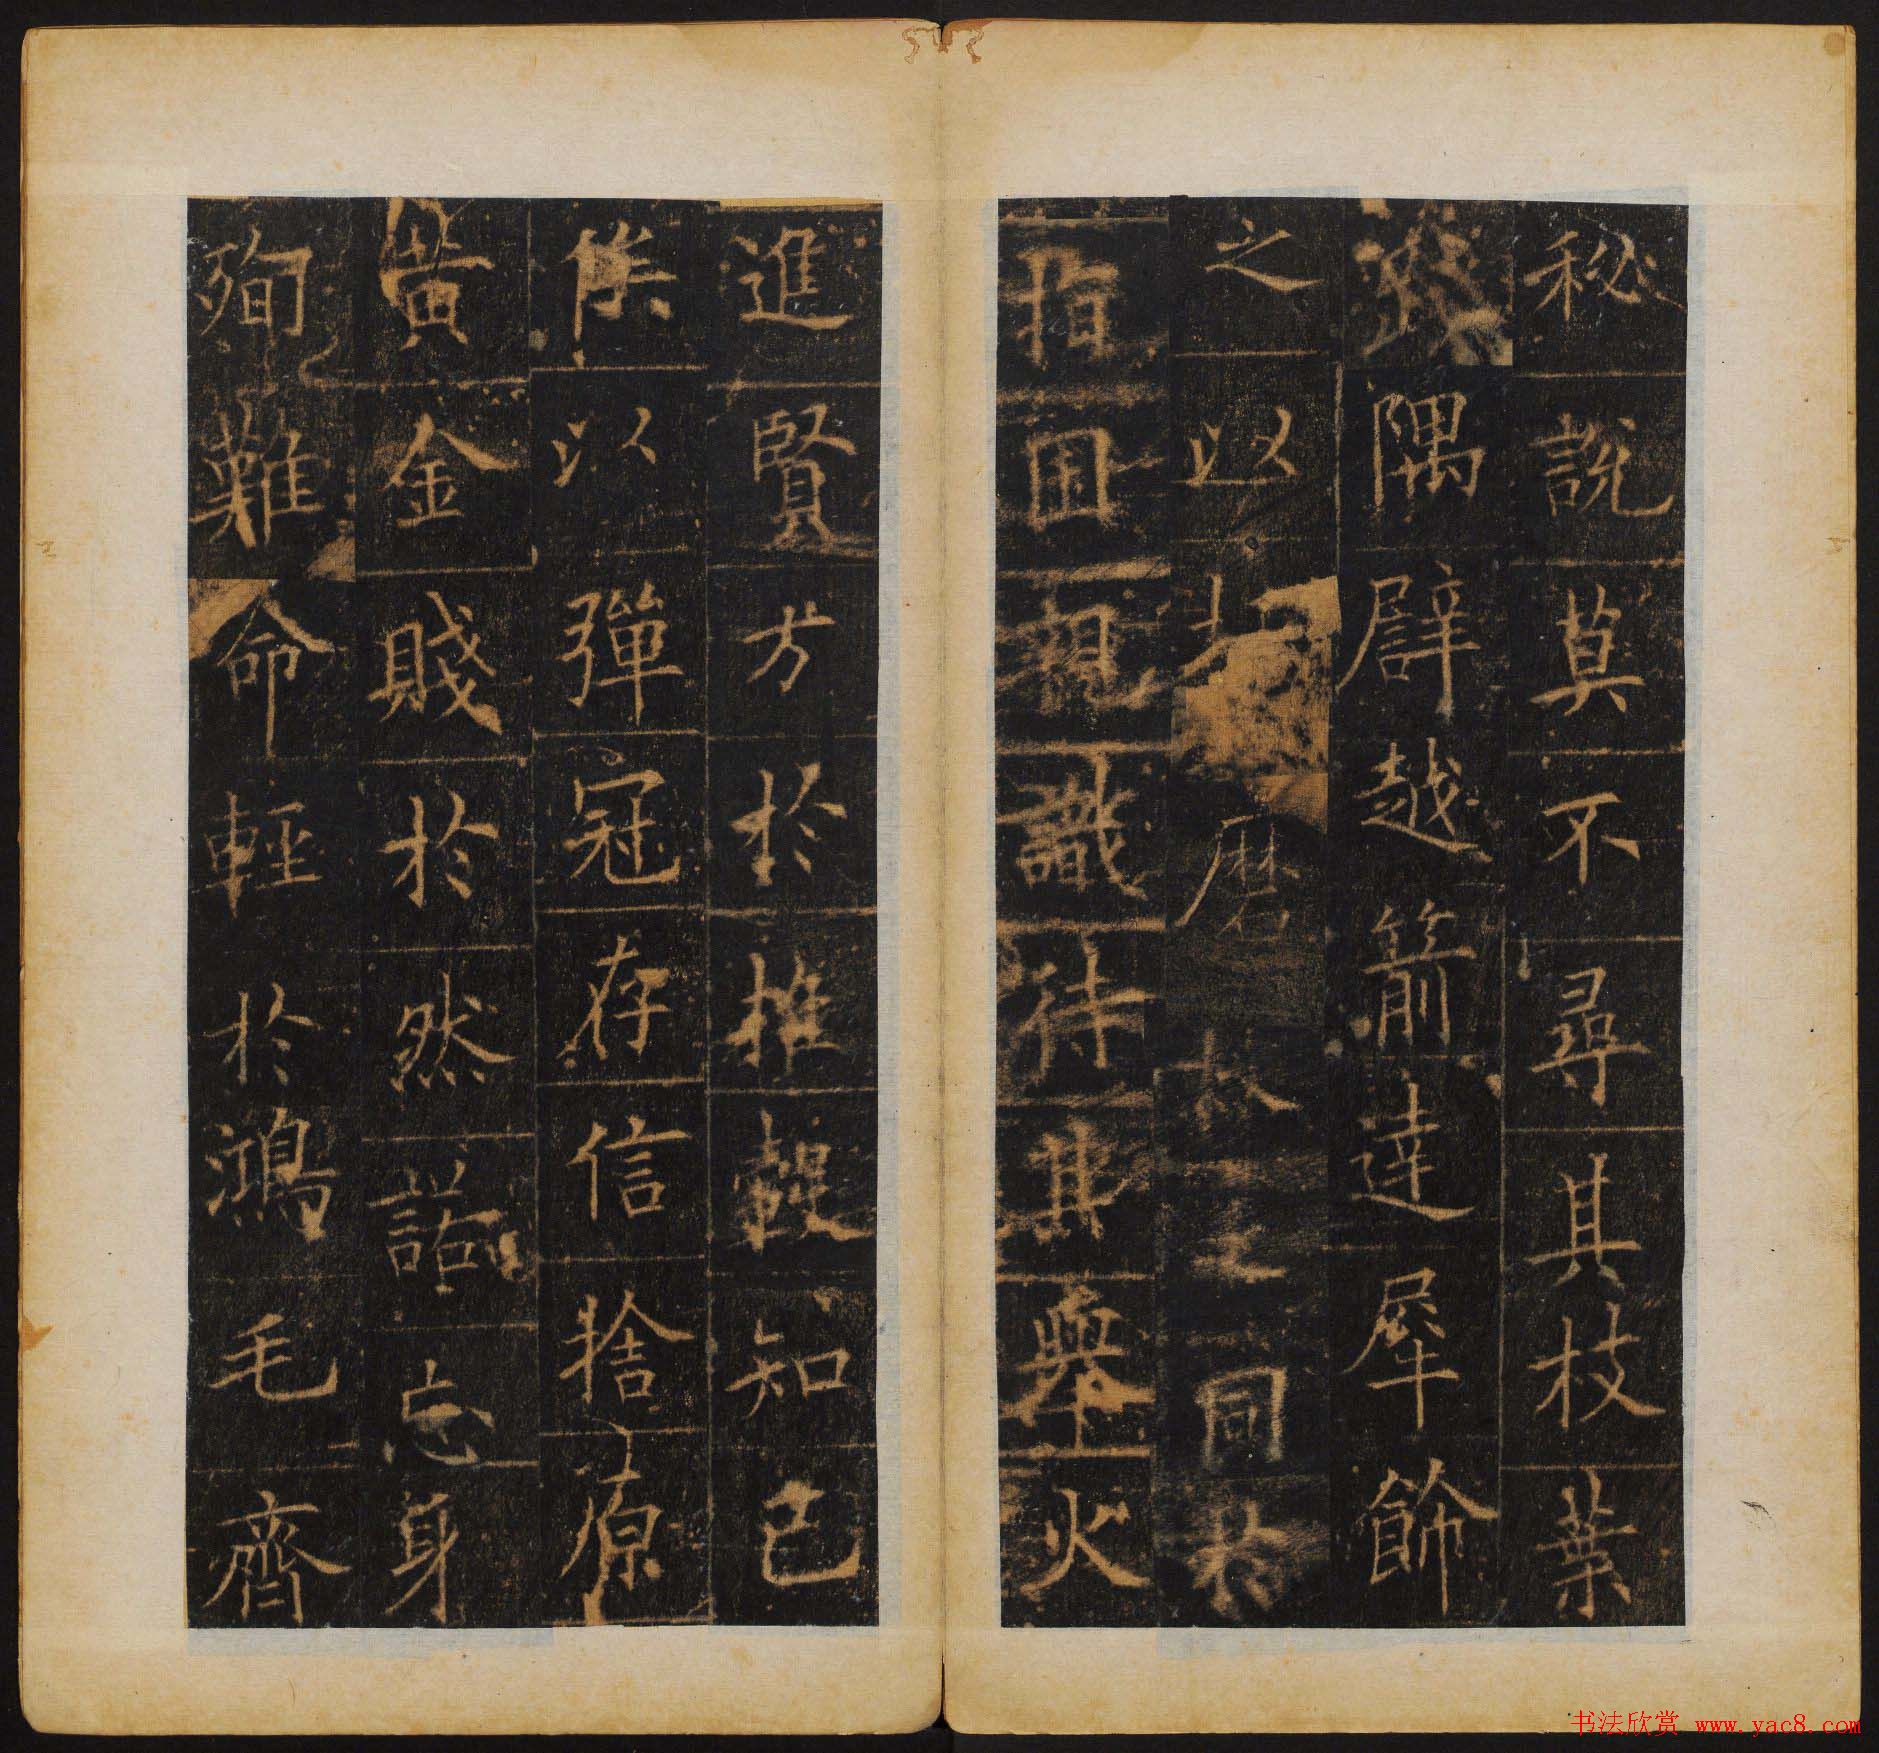 秘說莫不尋其枝葉
隅譬越箭達犀飾
之以磨同於
指囷親識待其舉火
進賢方於推轂知己
俟以彈冠存信捨原
黃金賤於然諾忘身
殉難命輕於鴻毛齊
书法欣赏 www.yac8.com